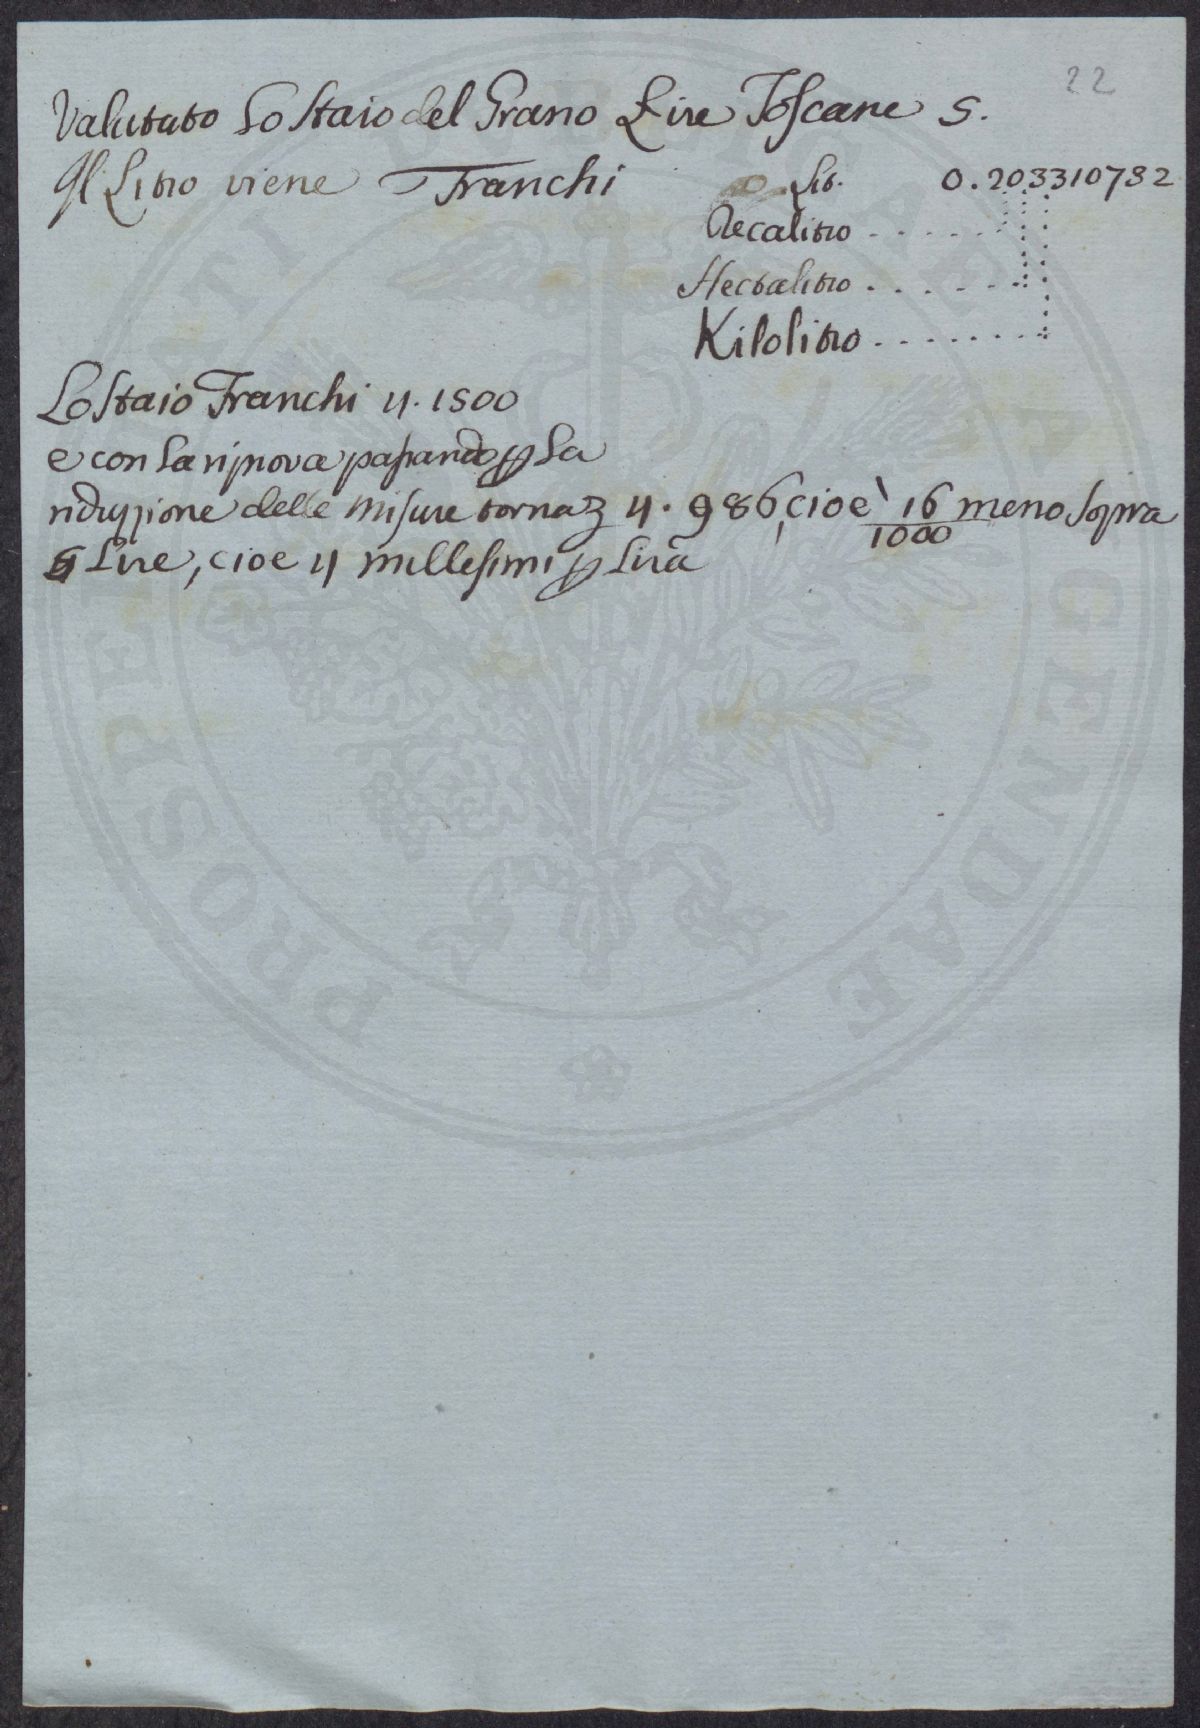 22
Valutato Lo Staio del Grano Lire Toscane 5.
Il Litro viene Franchi Lit. 0.203310732
Decalitro . . . . . .
Hectolitro . . . . . .
Kilolitro . . . . . . .
Lo Staio Franchi 4.1500
e con la riprova passando p la
riduzione delle misure torna £ 4.986, cioè 16/1000 meno sopra
5 Lire, cioe 4 millesimi p Lira
PROSPERITATI PUBLICAE AUGENDAE